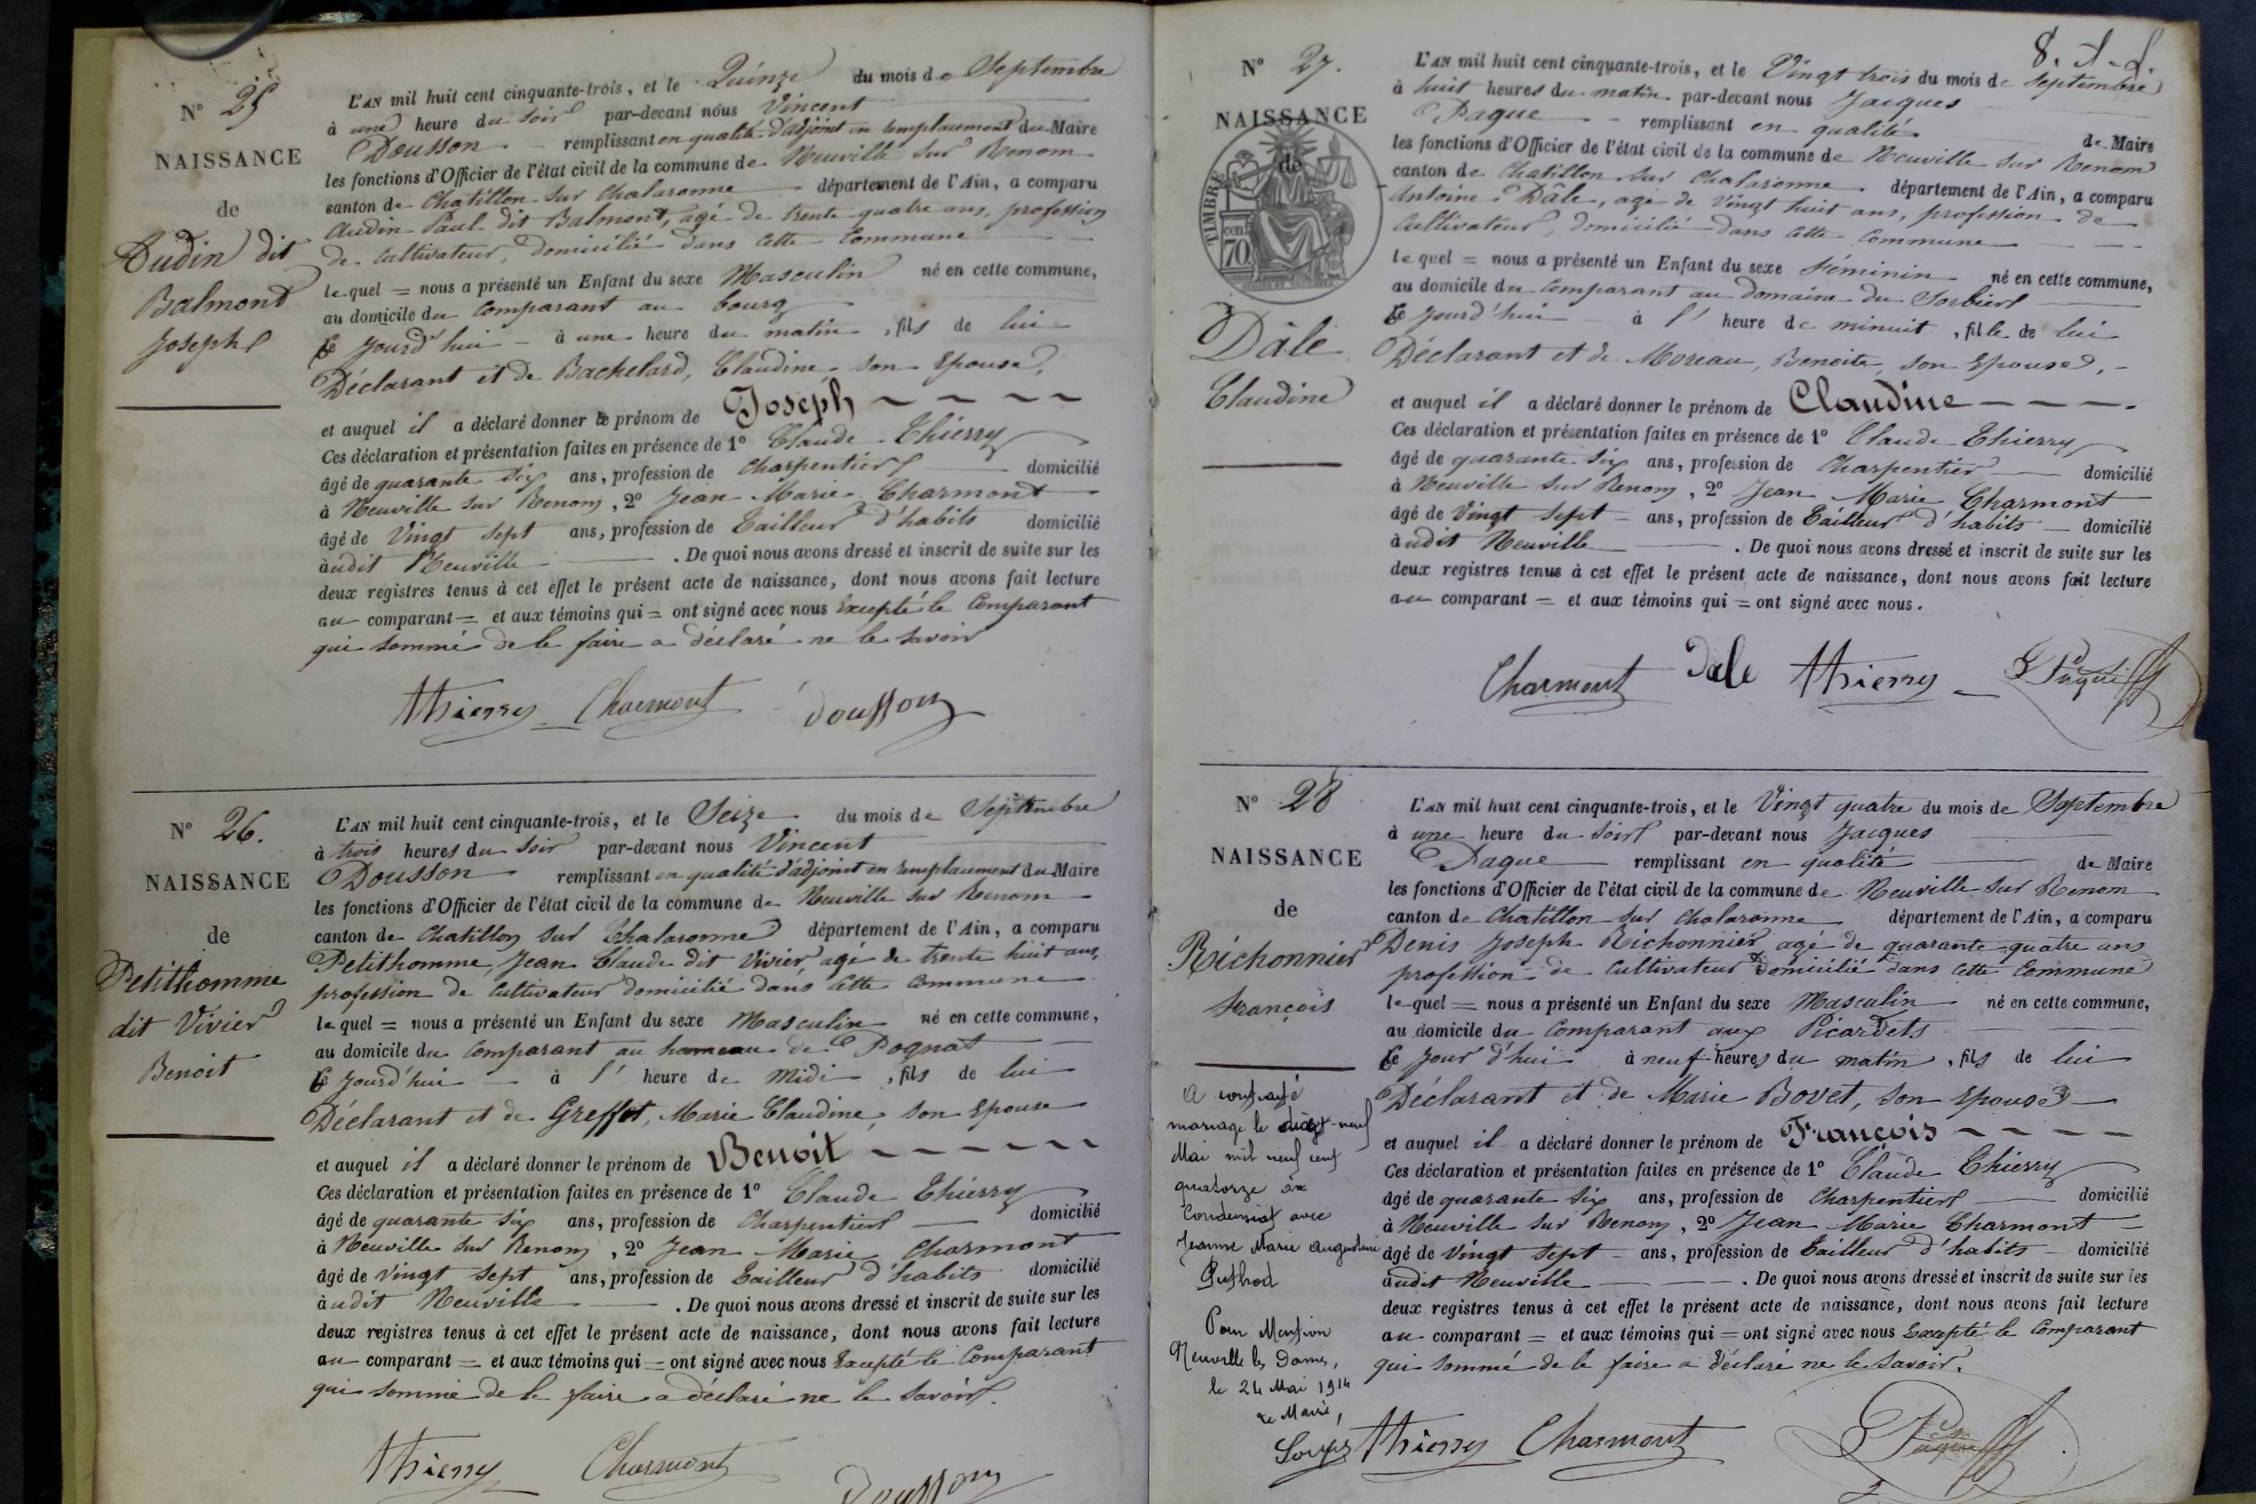 N° 25
NAISSANCE
de
Audin dit
Balmont
Joseph
L'AN mil huit cent cinquante-trois, et le Quinze du mois de Septembre
à une heure du soir par-devant nous Vincent
Dousson remplissant en qualité d'adjoint en remplacement du Maire
les fonctions d'Officier de l'état civil de la commune de Neuville sur Renom
canton de Chatillon sur Chalaronne département de l'Ain, a comparu
Audin Paul dit Balmont, agé de trente quatre ans, profession
de cultivateur, domicilié dans cette Commune
lequel = nous a présenté un Enfant du sexe Masculin né en cette commune,
au domicile du Comparant au bourg
Ce jourd'hui à une heure du matin, fils de lui
Déclarant et de Bachelard, Claudine son Epouse,
et auquel il a déclaré donner le prénom de Joseph
Ces déclaration et présentation faites en présence de 1° Claude Thierry
âgé de quarante six ans, profession de Charpentier domicilié
à Neuville sur Renom, 2° Jean Marie Charmont
âgé de Vingt sept ans, profession de Tailleur d'habits domicilié
audit Neuville . De quoi nous avons dressé et inscrit de suite sur les
deux registres tenus à cet effet le présent acte de naissance, dont nous avons fait lecture
au comparant = et aux témoins qui = ont signé avec nous Excepté le Comparant
qui sommé de le faire a déclaré ne le savoir
Thierry Charmont Dousson
N° 26.
NAISSANCE
de
Petithomme
dit Vivier
Benoit
L'AN mil huit cent cinquante-trois, et le Seize du mois de Septembre
à trois heures du soir par-devant nous Vincent
Dousson remplissant en qualité d'adjoint en remplacement du Maire
les fonctions d'Officier de l'état civil de la commune de Neuville sur Renom
canton de Chatillon sur Chalaronne département de l'Ain, a comparu
Petithomme, Jean Claude dit Vivier, agé de trente huit ans,
profession de cultivateur domicilié dans cette commune
lequel = nous a présenté un Enfant du sexe Masculin né en cette commune,
au domicile du Comparant au hameau de Pognat
Ce jourd'hui à l' heure de Midi, fils de lui
Déclarant et de Greffet, Marie Claudine, son Epouse
et auquel il a déclaré donner le prénom de Benoit
Ces déclaration et présentation faites en présence de 1° Claude Thierry
âgé de quarante six ans, profession de Charpentier domicilié
à Neuville sur Renom, 2° Jean Marie Charmont
âgé de Vingt sept ans, profession de Tailleur d'habits domicilié
audit Neuville . De quoi nous avons dressé et inscrit de suite sur les
deux registres tenus à cet effet le présent acte de naissance, dont nous avons fait lecture
au comparant = et aux témoins qui = ont signé avec nous Excepté le Comparant
qui sommé de le faire a déclaré ne le savoir.
Thierry Charmont Dousson
N° 27.
NAISSANCE
de
TIMBRE
cent 70
Dâle
Claudine
L'AN mil huit cent cinquante-trois, et le Vingt trois du mois de Septembre
à huit heures du matin par-devant nous Jacques
Paque remplissant en qualité de Maire
les fonctions d'Officier de l'état civil de la commune de Neuville sur Renom
canton de Chatillon sur Chalaronne département de l'Ain, a comparu
Antoine Dâle, agé de Vingt huit ans, profession de
Cultivateur, domicilié dans cette Commune
lequel = nous a présenté un Enfant du sexe féminin né en cette commune,
au domicile du Comparant au domaine du Sorbier
Ce jourd'hui à l' heure de minuit, fille de lui
Déclarant et de Moreau, Benoite, son Epouse,
et auquel il a déclaré donner le prénom de Claudine
Ces déclaration et présentation faites en présence de 1° Claude Thierry
âgé de quarante six ans, profession de Charpentier domicilié
à Neuville sur Renom, 2° Jean Marie Charmont
âgé de Vingt sept ans, profession de Tailleur d'habits domicilié
audit Neuville . De quoi nous avons dressé et inscrit de suite sur les
deux registres tenus à cet effet le présent acte de naissance, dont nous avons fait lecture
au comparant = et aux témoins qui = ont signé avec nous.
Charmont Dâle Thierry J Paque
N° 28
NAISSANCE
de
Richonnier
François
A contracté
mariage le dix-neuf
Mai mil neuf cent
quatorze à
Condeissiat avec
Jeanne Marie Augustine
Puthod
Pour Mention
Neuville les Dames,
le 24 Mai 1914
Le Maire,
L'AN mil huit cent cinquante-trois, et le Vingt quatre du mois de Septembre
à une heure du soir par-devant nous Jacques
Paque remplissant en qualité de Maire
les fonctions d'Officier de l'état civil de la commune de Neuville sur Renom
canton de Chatillon sur Chalaronne département de l'Ain, a comparu
Denis Joseph Richonnier agé de quarante quatre ans
profession de cultivateur domicilié dans cette Commune
lequel = nous a présenté un Enfant du sexe Masculin né en cette commune,
au domicile du Comparant aux Picardets
Ce jour d'hui à neuf heures du matin, fils de lui
Déclarant et de Marie Bovet, son Epouse
et auquel il a déclaré donner le prénom de François
Ces déclaration et présentation faites en présence de 1° Claude Thierry
âgé de quarante six ans, profession de Charpentier domicilié
à Neuville sur Renom, 2° Jean Marie Charmont
âgé de Vingt sept ans, profession de Tailleur d'habits domicilié
audit Neuville . De quoi nous avons dressé et inscrit de suite sur les
deux registres tenus à cet effet le présent acte de naissance, dont nous avons fait lecture
au comparant = et aux témoins qui = ont signé avec nous Excepté le Comparant
qui sommé de le faire a déclaré ne le savoir.
Thierry Charmont J Paque